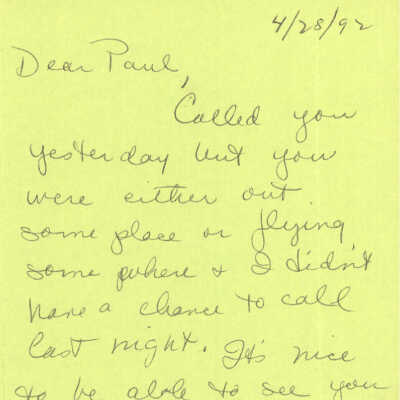 4/28/92
Dear Paul,
Called you
yesterday but you
were either out
some place or flying
some where & I didn't
have a chance to call
last night. It's nice
to be able to see you